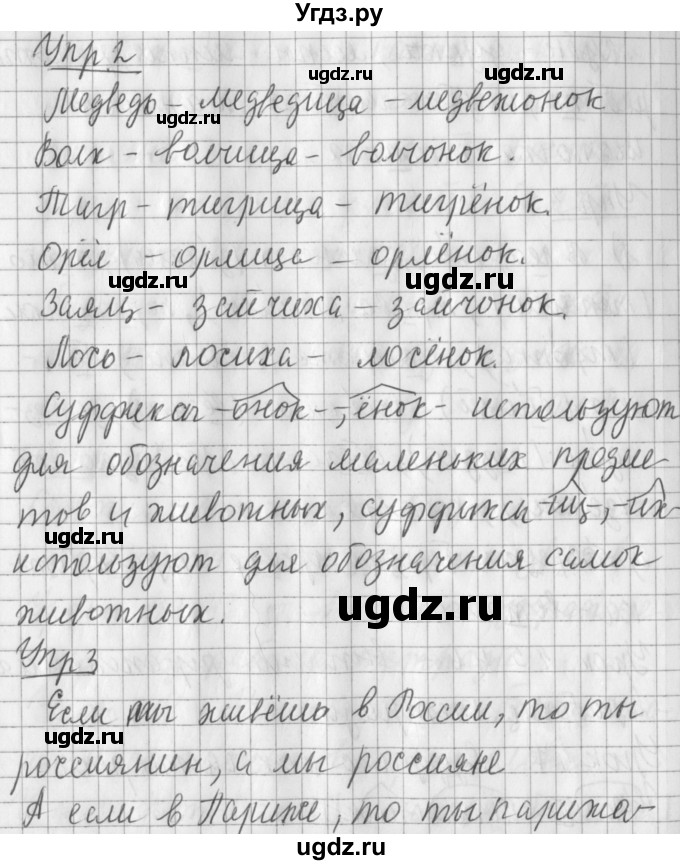 Угдз.ру
Упр. 2
ugdz.ru ugdz.ru
Медведь - медведица - медвежонок
ugdz.ru
Волк - волчица - волчонок.
ugdz.ru ugdz.ru
Тигр - тигрица - тигрёнок.
Орёл - орлица - орлёнок.
ugdz.ru ugdz.ru
Заяц - зайчиха - зайчонок.
Лось - лосиха - лосёнок.
ugdz.ru ugdz.ru
Суффиксы -онок-, -ёнок- используют
для обозначения маленьких предме-
тов и животных, суффиксы -иц-, -их-
ugdz.ru ugdz.ru
используют для обозначения самок
животных.
ugdz.ru
Упр 3
ugdz.ru ugdz.ru
Если ты живёшь в России, то ты
ugdz.ru ugdz.ru
россиянин, а мы россияне
А если в Париже, то ты парижа-
ugdz.ru ugdz.ru